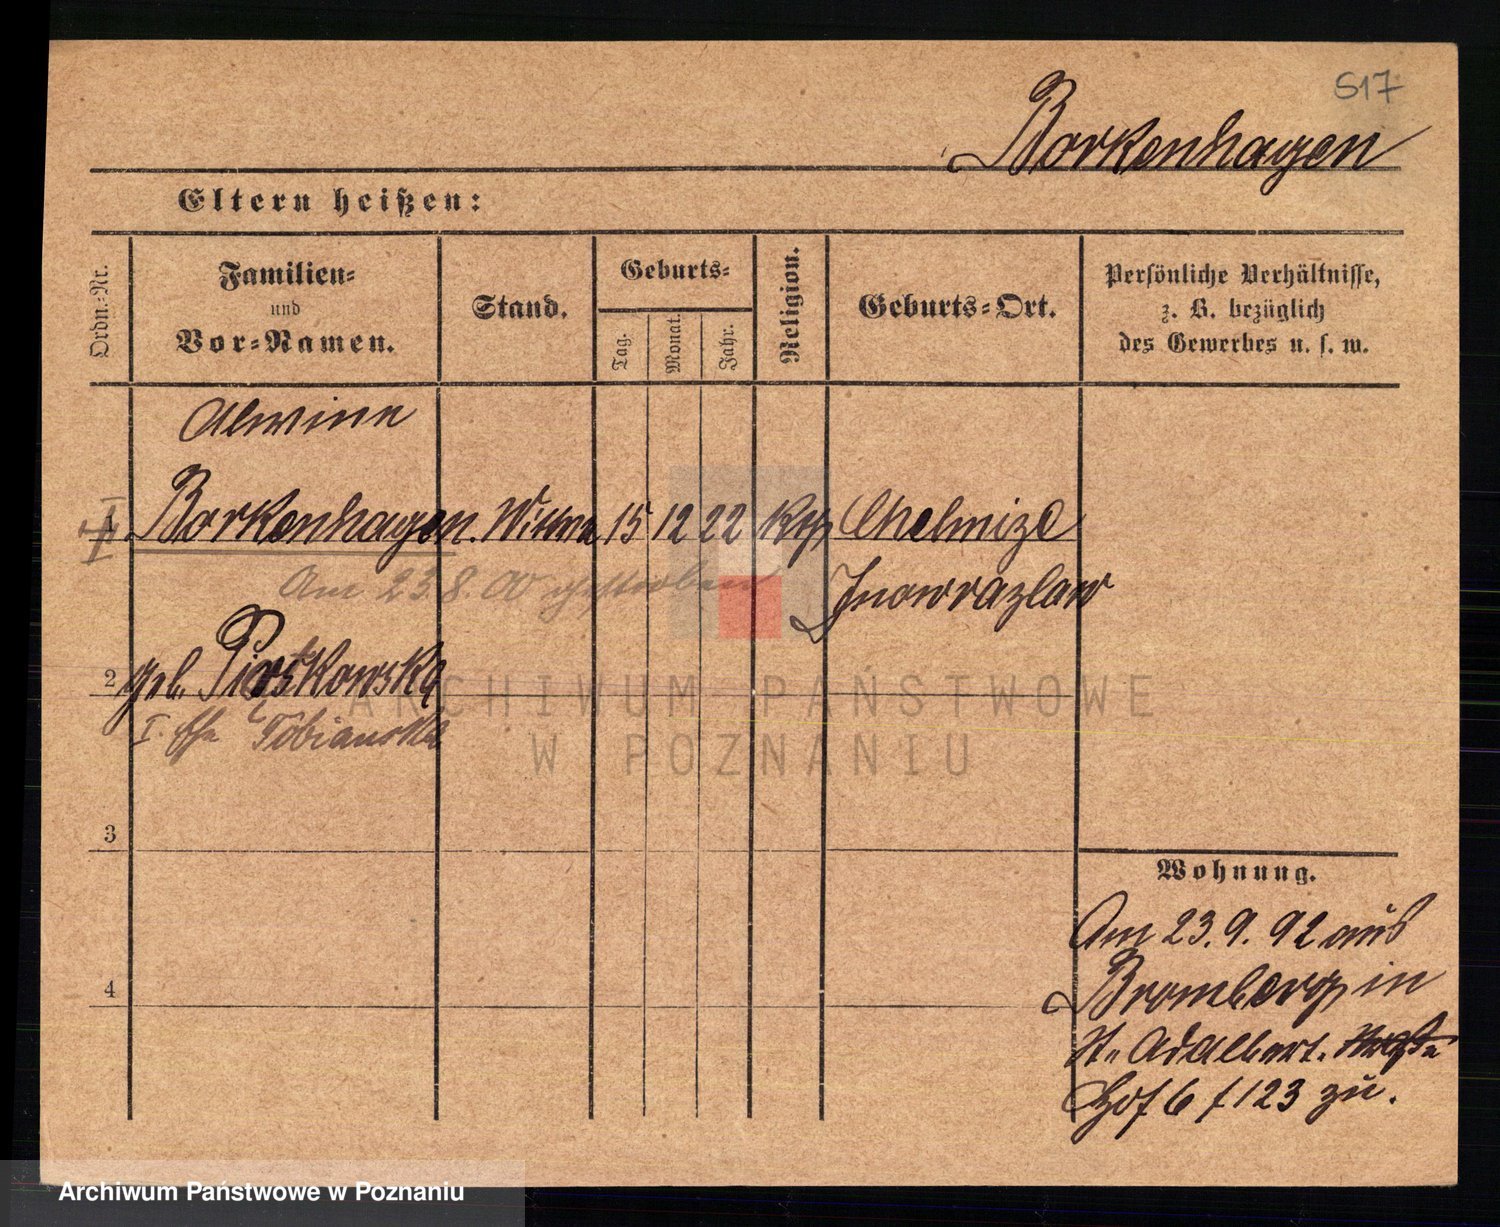 517
Borkenhagen
Eltern heißen:
Ordn.-Nr.
Familien-
und
Vor-Namen.
Stand.
Geburts-
Tag.
Monat.
Jahr.
Religion.
Geburts-Ort.
Persönliche Verhältnisse,
z. B. bezüglich
des Gewerbes u. s. w.
Alwine
1 Borkenhagen. Wittwe 15 12 22 kth Chelmize
Am 23.8.00 gestorben Inowrazlaw
2 geb. Piotrkowska
I. Ehe Tobianska
ARCHIWUM PAŃSTWOWE
W POZNANIU
3
4
Wohnung.
Am 23.9.92 aus
Bromberg in
St. Adalbert. Straße
Hof 6 / 123 zu.
Archiwum Państwowe w Poznaniu